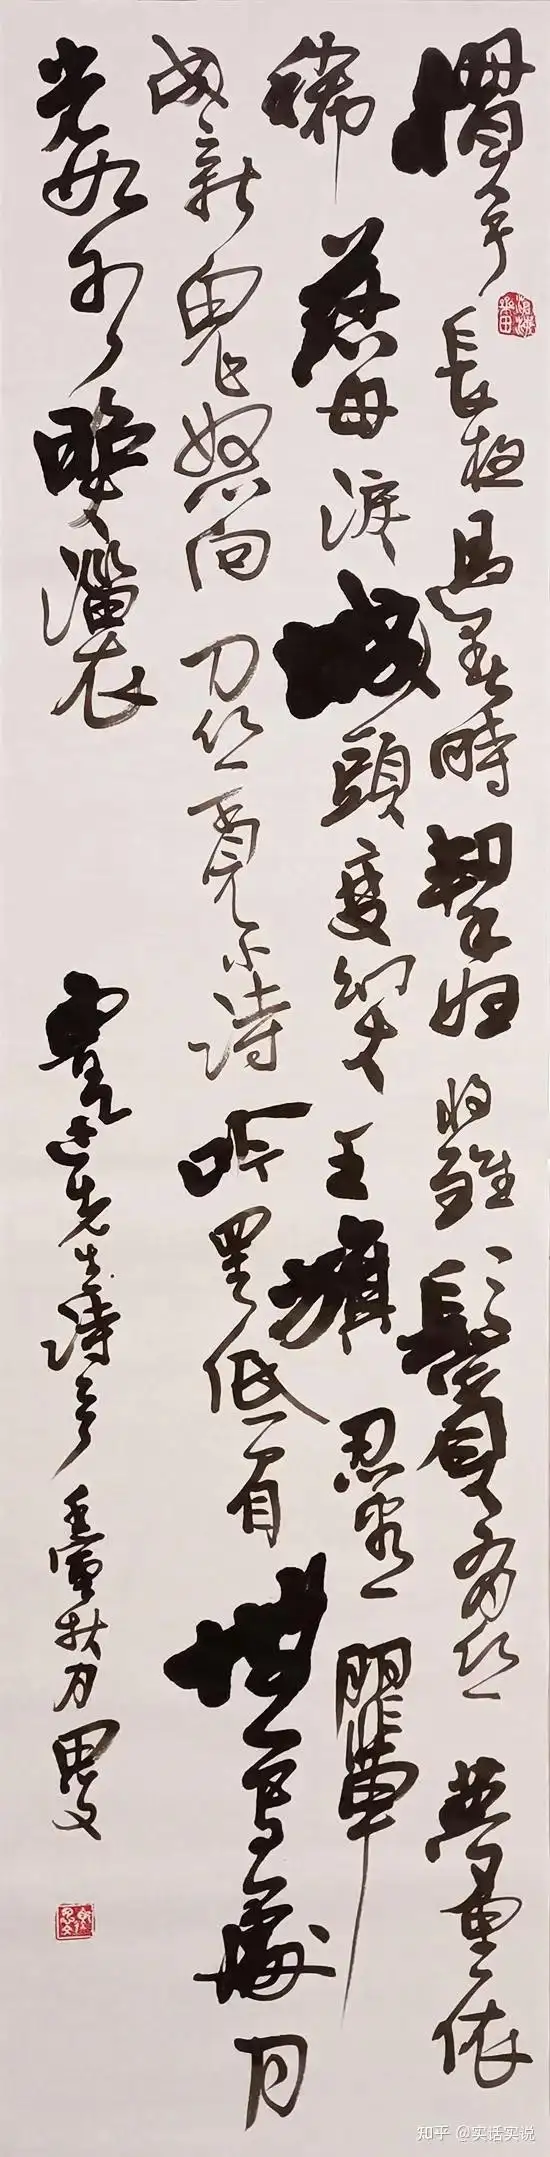 慣於長夜過春時挈婦將雛鬢有丝夢里依
稀慈母淚城頭變幻大王旗忍看朋輩
成新鬼怒向刀丛覓小詩吟罷低眉無寫處月
光如水照緇衣
魯迅先生詩 壬寅秋月 思文
知乎 @实话实说